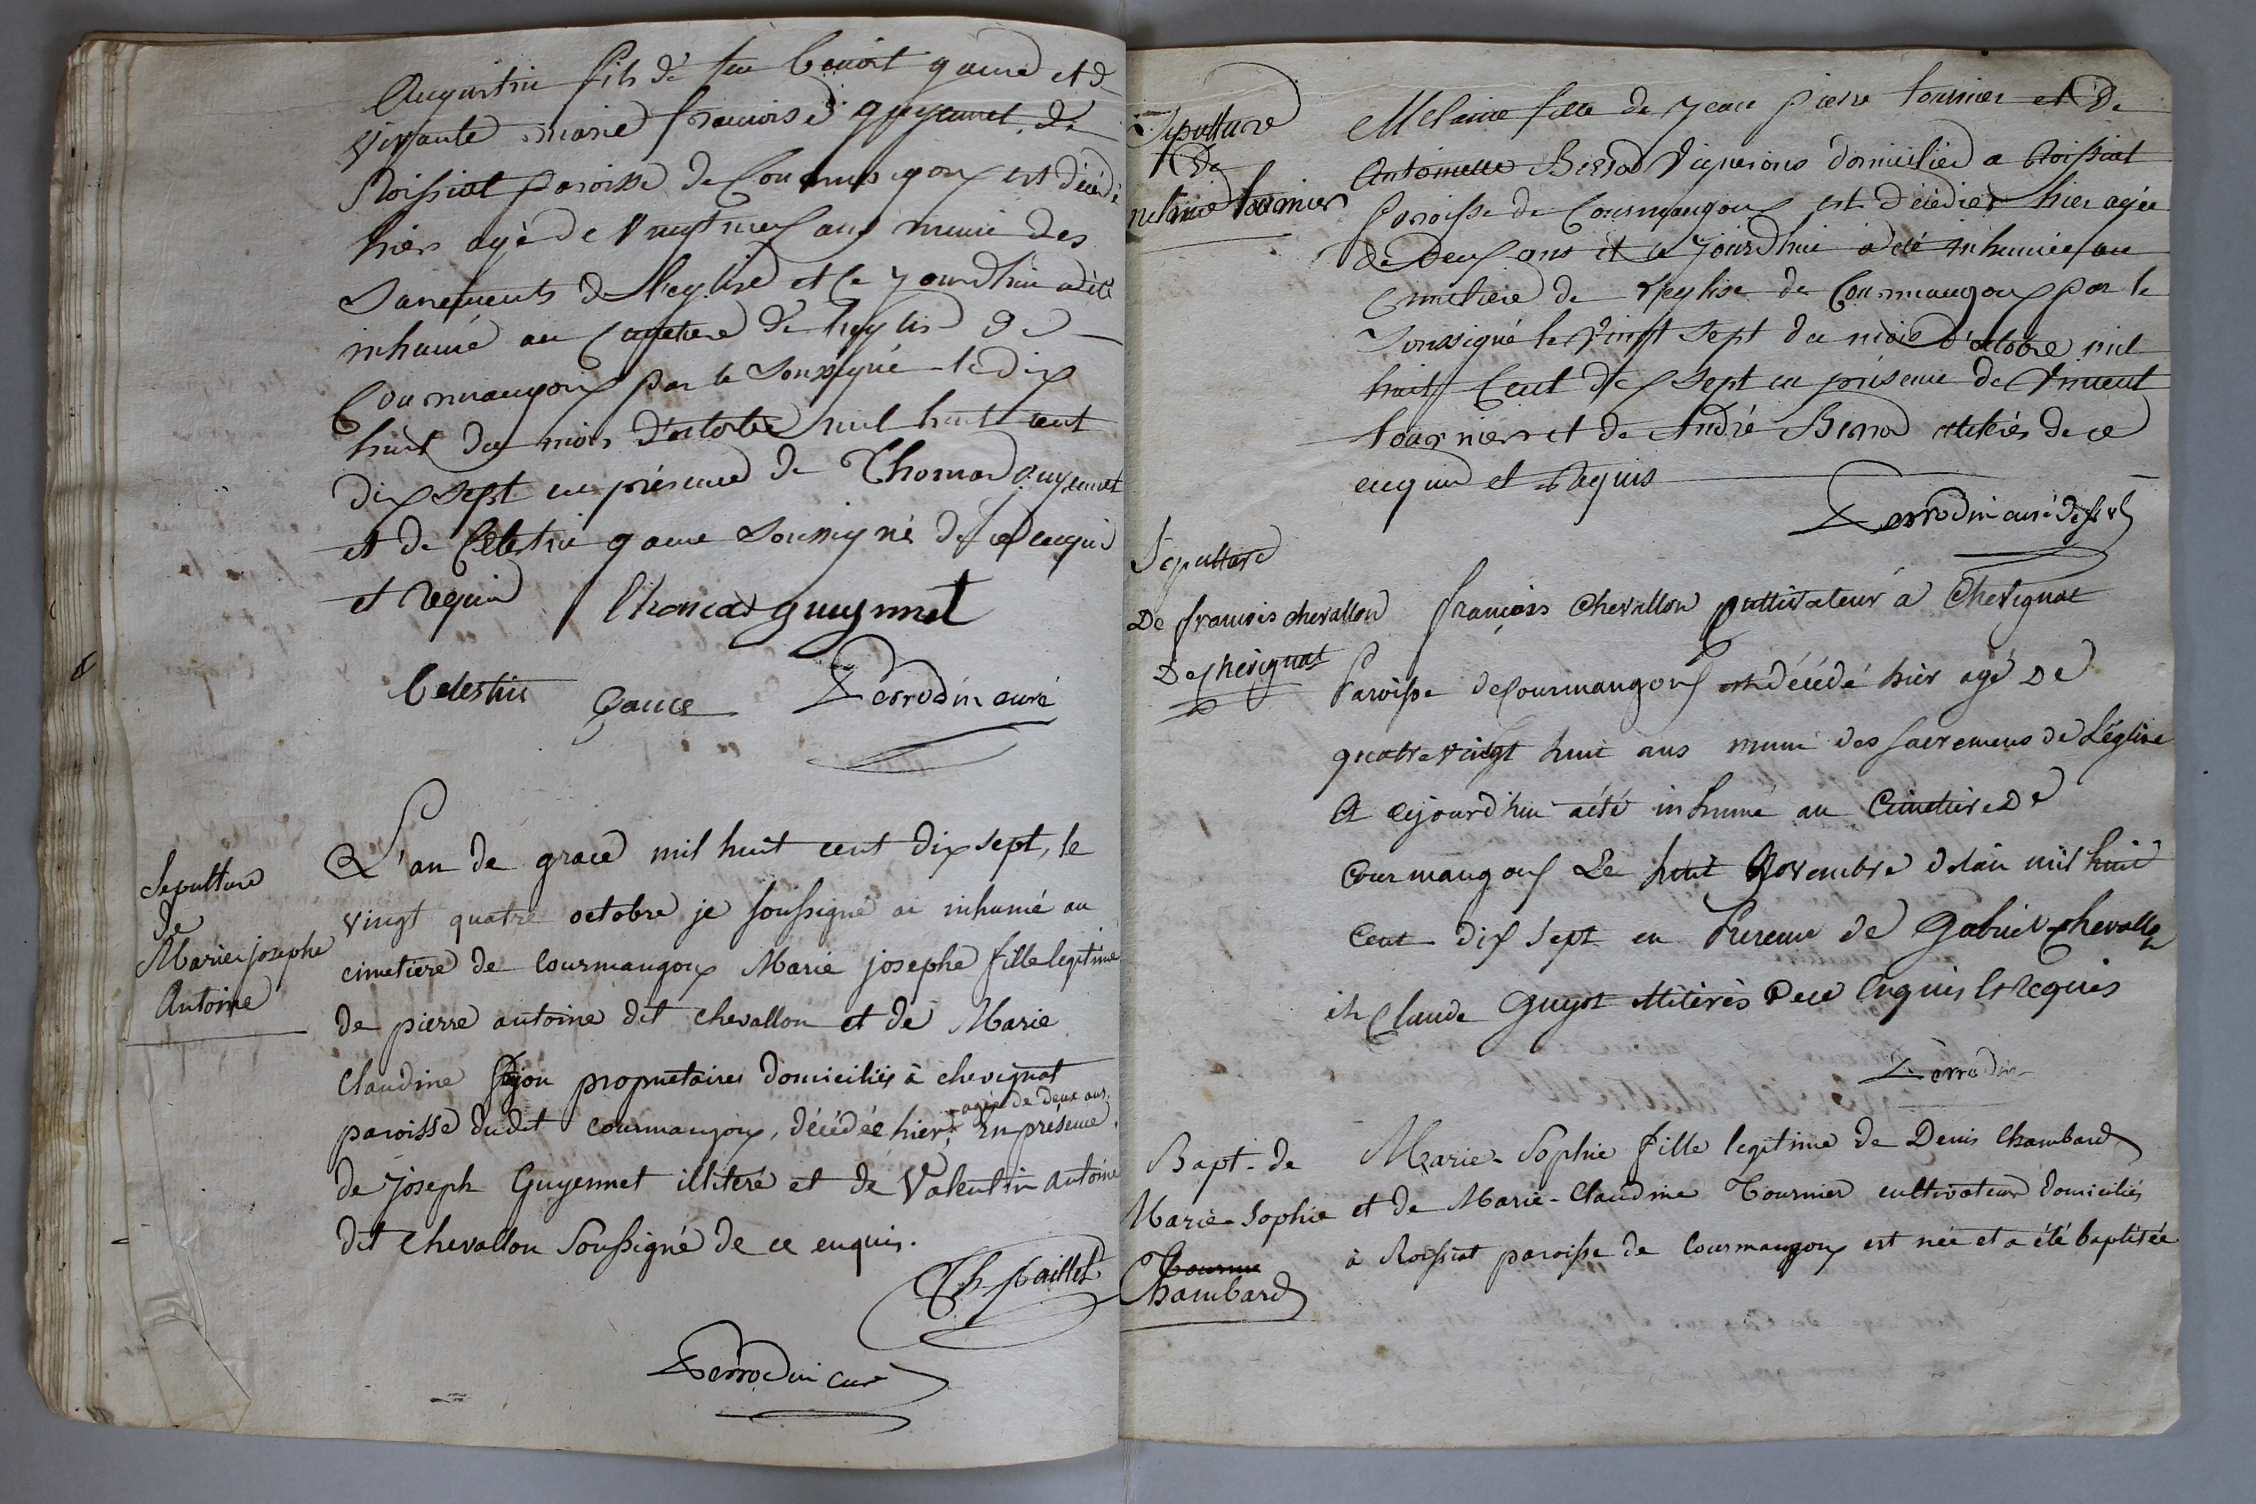 Augustin fils de feu Benoit gauce et de
vivante marie francoise guyennet de
Roissiat paroisse de Courmangoux est décédé
hier agé de vingt neuf ans muni des
Sacrements de l'eglise et ce jourdhui a été
inhumé au cimetiere de l'eglise de
Courmangoux par le soussigné le dix
huit du mois d'octobre mil huit cent
dix sept en présence de Thomas guyennet
et de Celestin gauce soussignés de ce enquis
et requis Thomas guyennet
Celestin Gauce Perrodin curé
Sepulture
de
Marie josephe
Antoine
L'an de grace mil huit cent dix sept, le
vingt quatre octobre je soussigné ai inhumé au
cimetière de Courmangoux Marie josephe fille legitime
de pierre antoine dit chevallon et de Marie
Claudine pjou proprietaires domiciliés à chevignat
paroisse dudit Courmangoux, décédée hier, agée de deux ans, En présence
de joseph Guyennet illiteré et de Valentin antoine
dit chevallon soussigné de ce enquis.
Th. paillet
Perrodin curé
Sepulture
de
melanie tournier
Melanie fille de jean pierre tournier et de
Antoinette Berrod vignerons domiciliés a Roissiat
paroisse de Courmangoux est décédée hier agée
de deux ans et ce jourdhui a été inhumée au
cimetiere de l'eglise de Courmangoux par le
soussigné le vingt sept du mois d'octobre mil
huit cent dix sept en présence de vincent
tournier et de André Berrod illiterés de ce
enquis et requis
Perrodin curé
Sepulture
De francois chevallon
De chevignat
françois Chevallon cultivateur a Chevignat
Paroisse de courmangoux est décédé hier agé De
quatre vingt huit ans muni des sacremens de L'église
et cejourd'hui a été inhumé au Cimetiere De
Courmangoux Le huit Novembre de l'an mil huit
Cent dix sept en Presence de Gabriel chevallon
et Claude Guyot illiterés De ce Enquis et Requis
Perrodin
Bapt. de
Marie-Sophie
Tournie
Chambard
Marie-Sophie fille legitime de Denis Chambard
et de Marie-Claudine Tournier cultivateurs domiciliés
à Roissiat paroisse de Courmangoux est née et a été baptisée